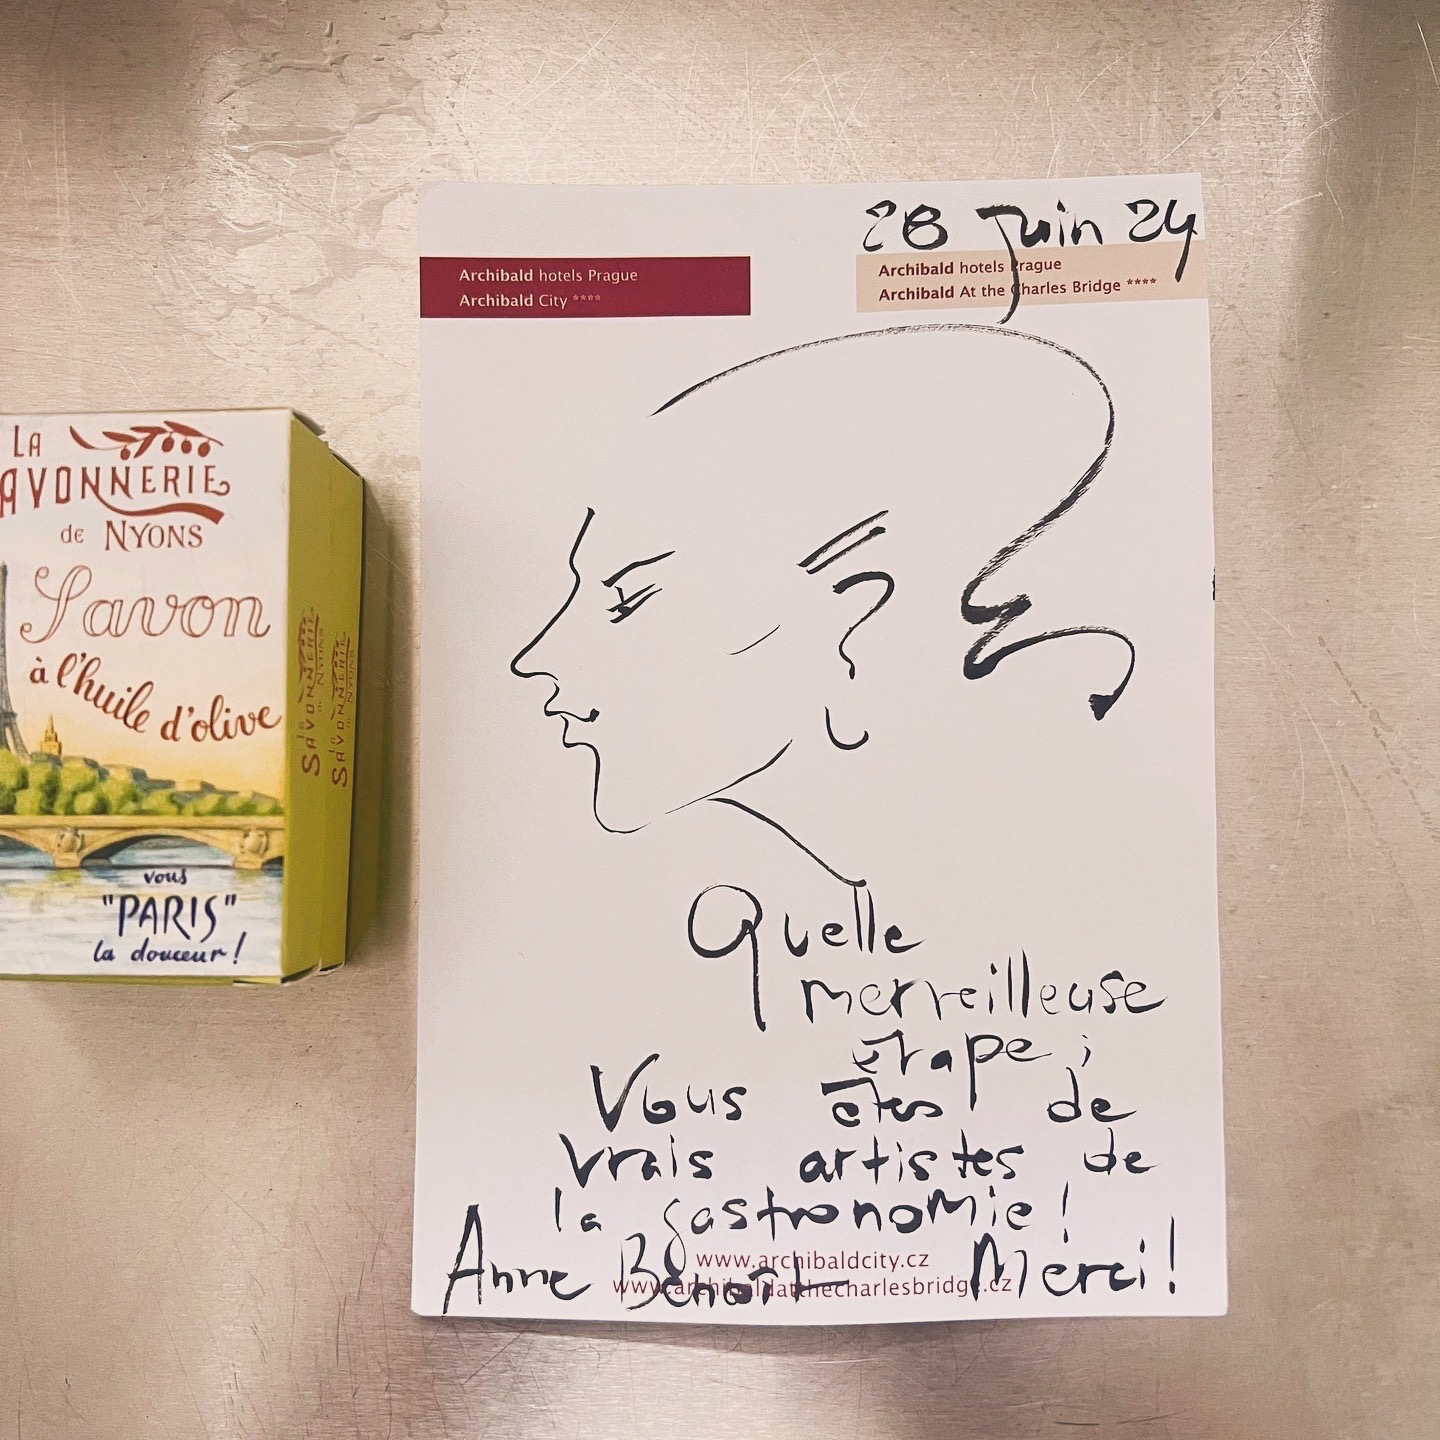 LA
SAVONNERIE
de NYONS
Savon
à l'huile d'olive
vous
"PARIS"
la douceur !
la
SAVONNERIE
de NYONS
la
SAVONNERIE
de NYONS
28 Juin 24
Archibald hotels Prague
Archibald City ****
Archibald hotels Prague
Archibald At the Charles Bridge ****
Quelle
merveilleuse
étape ;
Vous êtes de
vrais artistes de
la gastronomie !
www.archibaldcity.cz
Anne Benoît Merci !
www.archibaldatthecharlesbridge.cz